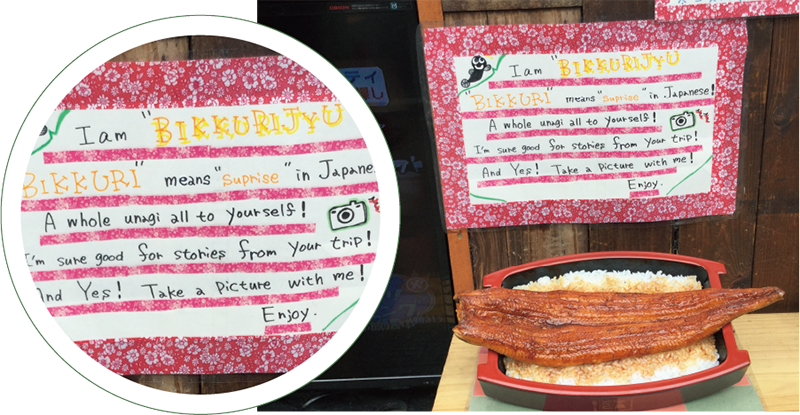 I am "BIKKURIJYU
"BIKKURI" means "Suprise" in Japanese!
A whole unagi all to yourself!
I'm sure good for stories from your trip!
And Yes! Take a picture with me!
Enjoy.
I am "BIKKURIJYU
BIKKURI" means "Suprise" in Japane
A whole unagi all to yourself!
I'm sure good for stories from your trip!
And Yes! Take a picture with me!
Enjoy.